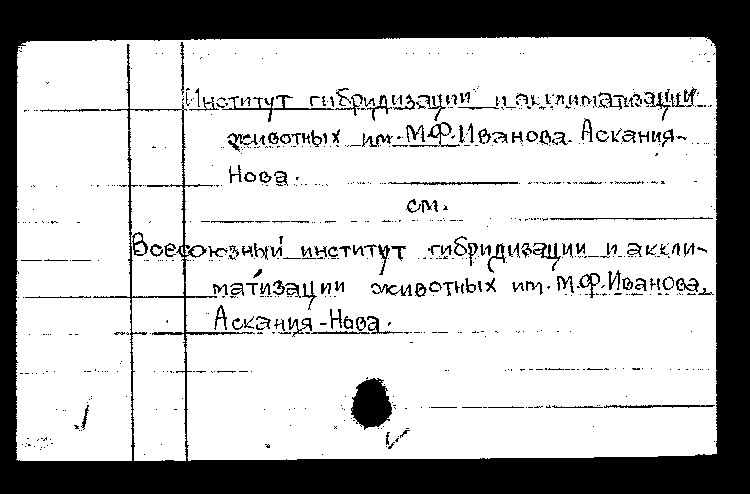 Институт гибридизации и акклиматизации
животных им. М.Ф. Иванова. Аскания-
Нова.
см.
Всесоюзный институт гибридизации и аккли-
матизации животных им. М.Ф. Иванова,
Аскания-Нова.